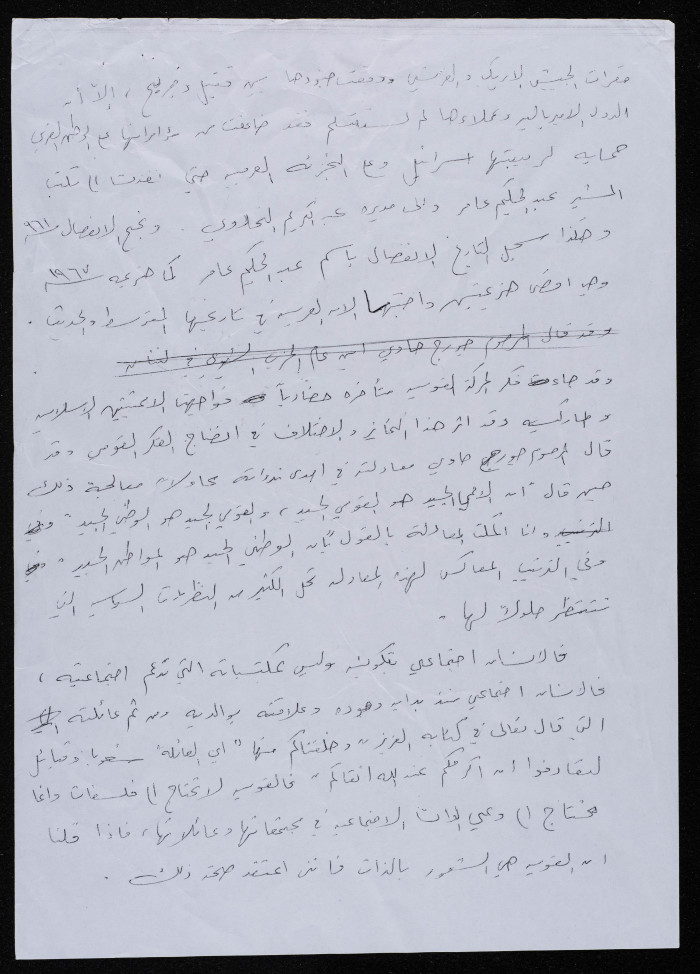 مقرات الجيش الامريكي والفرنسي ووقعت جنودها بين قتيل وجريح ، إلا أن
الدول الامبريالية وعملاءها لم تستسلم فقد ضاعفت من مؤامراتها على الوطن العربي
حماية لربيبتها اسرائيل وعلى التجزئة العربية حتى نفذت الى مكتب
المشير عبد الحكيم عامر والى مديره عبد الكريم النحلاوي . ونجح الانفصال ٩٦١
وهكذا سجل التاريخ الانفصال باسم عبد الحكيم عامر كما هزيمة ١٩٦٧
وهي اقصى هزيمتين واجهتها الامة العربية في تاريخها المتوسط والحديث .
وقد قال المرحوم جورج حاوي امين عام الحزب الشيوعي في لبنان
وقد جاء فكر الحركة القومية متأخرة حضارياً فواجهها الامميتين الاسلامية
والماركسية وقد اثر هذا التمايز والاختلاف في انضاج الفكر القومي وقد
قال المرحوم جورج حاوي معادلته في احدى ندواته محاولا" معالجة ذلك
حين قال "ان الاممي الجيد هو القومي الجيد ، والقومي الجيد هو الوطني الجيد"
وانا اكملت المعادلة بالقول "بأن الوطني الجيد هو المواطن الجيد"
وفي الترتيب المعاكس لهذه المعادلة تحل الكثير من النظريات السياسية التي
تنتظر حلولا لها .
فالانسان اجتماعي بتكوينه وليس بمكتسباته التي تدعم اجتماعيته ،
فالانسان اجتماعي منذ بداية وجوده وعلاقته بوالديه ومن ثم عائلته
التي قال تعالى في كتابه العزيز "وخلقناكم منها "اي العائلة" شعوبا وقبائل
لتعارفوا ان اكرمكم عند الله اتقاكم" فالقومية لا تحتاج الى فلسفات وانما
تحتاج الى وعي الذات الاجتماعية في مجتمعاتها وعائلاتها ، فاذا قلنا
ان القومية هي الشعور بالذات فانني اعتقد صحة ذلك .